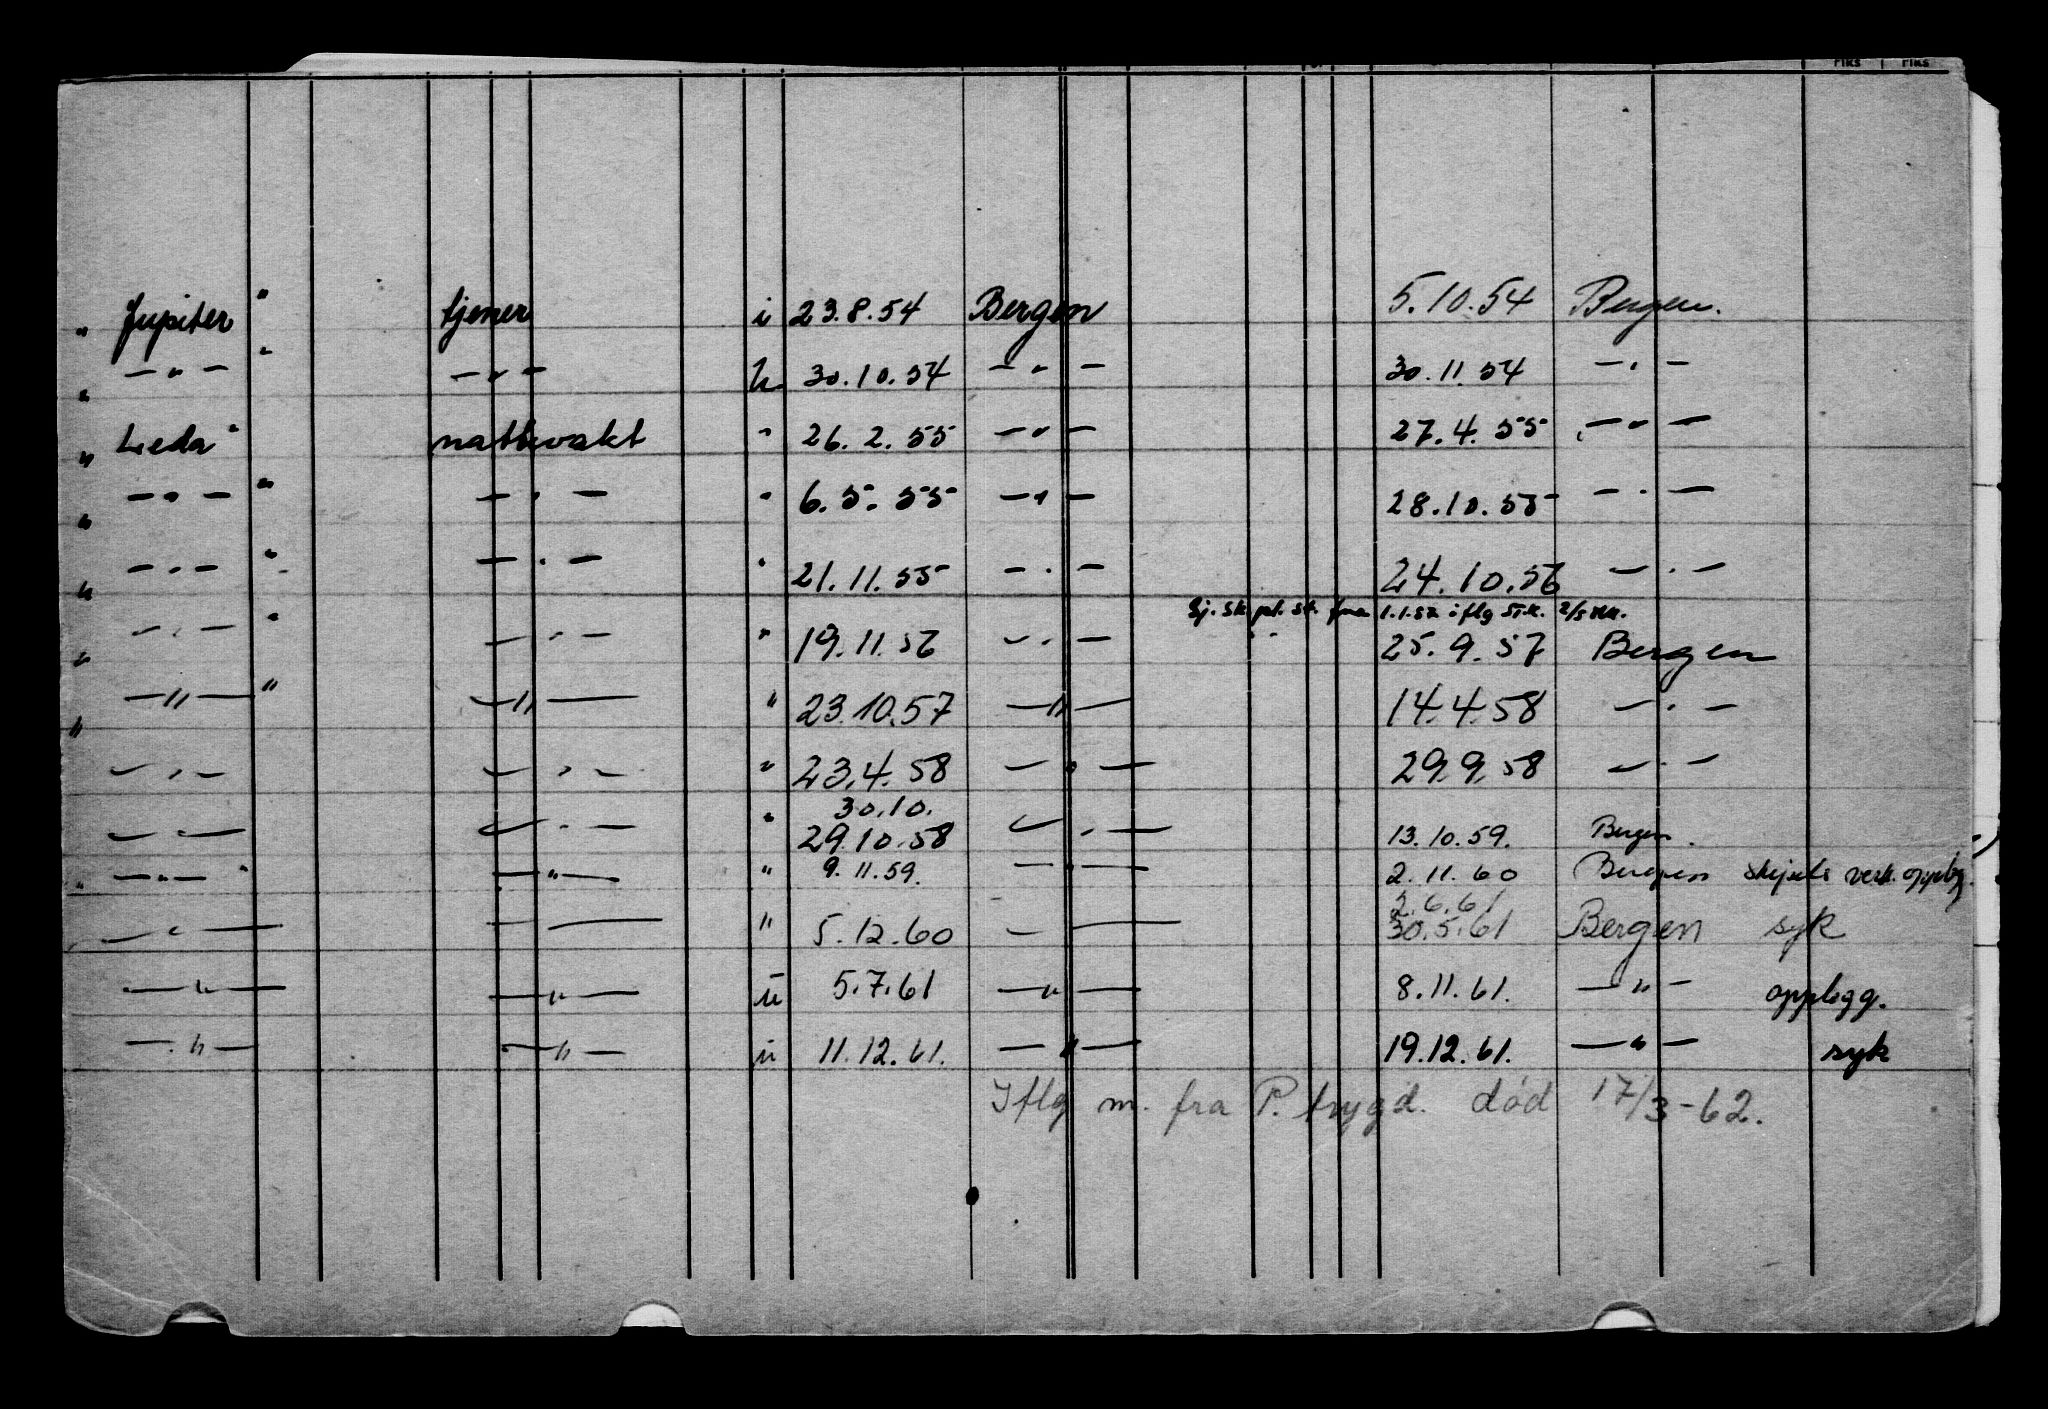 Fiks Fiks
" Jupiter " tjener i 23.8.54 Bergen 5.10.54 Bergen.
" — " — " — " — h 30.10.54 — " — 30.11.54 — " —
" Leda " nattvakt " 26.2.55 — " — 27.4.55 — " —
" — " — " — " — " 6.5.55 — " — 28.10.55 — " —
" — " — " — " — " 21.11.55 — " — 24.10.56 — " —
fra 1.1.57 iflg
" — " — " — " — " 19.11.56 — " — 25.9.57 Bergen
" — " — " — " — " 23.10.57 — " — 14.4.58 — " —
— " — — " — " 23.4.58 — " — 29.9.58 — " —
30.10.
— " — — " — " 29.10.58 — " — 13.10.59. Bergen.
" — " — " — " — " 9.11.59. — " — 2.11.60 Bergen
2.6.61
— " — — " — " 5.12.60 — " — 30.5.61 Bergen syk
— " — — " — u 5.7.61 — " — 8.11.61. — " — opplegg.
— " — — " — u 11.12.61. — " — 19.12.61. — " — syk
Iflg m. fra P. trygd. død 17/3-62.